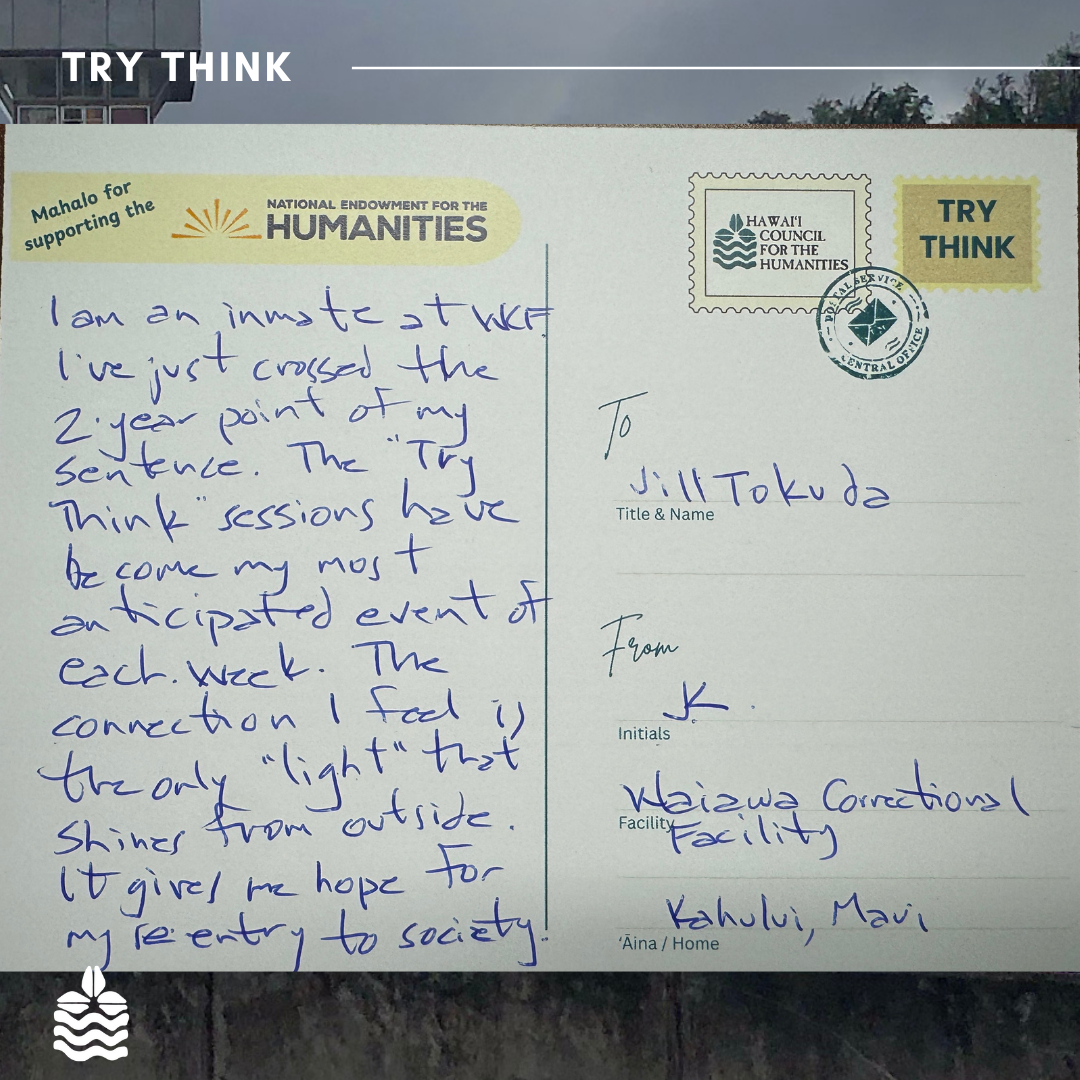 TRY THINK
Mahalo for
supporting the
NATIONAL ENDOWMENT FOR THE
HUMANITIES
I am an inmate at WCF
I've just crossed the
2·year point of my
sentence. The "Try
Think" sessions have
become my most
anticipated event of
each week. The
connection I feel is
the only "light" that
shines from outside.
It gives me hope for
my re-entry to society.
HAWAI'I
COUNCIL
FOR THE
HUMANITIES
TRY
THINK
POSTAL SERVICE
CENTRAL OFFICE
To
Jill Tokuda
Title & Name
From
JK.
Initials
Waiawa Correctional
Facility
Facility
Kahului, Maui
ʻĀina / Home